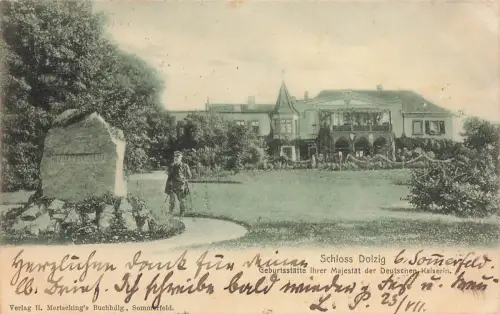 Schloss Dolzig b. Sommerfeld
Geburtsstätte Ihrer Majestät der Deutschen Kaiserin.
Herzlichen Dank für deinen
lb. Brief. Ich schreibe bald wieder. Gruß u. Kuss
L. P. 23/VII.
Verlag H. Mertsching's Buchhdlg., Sommerfeld.